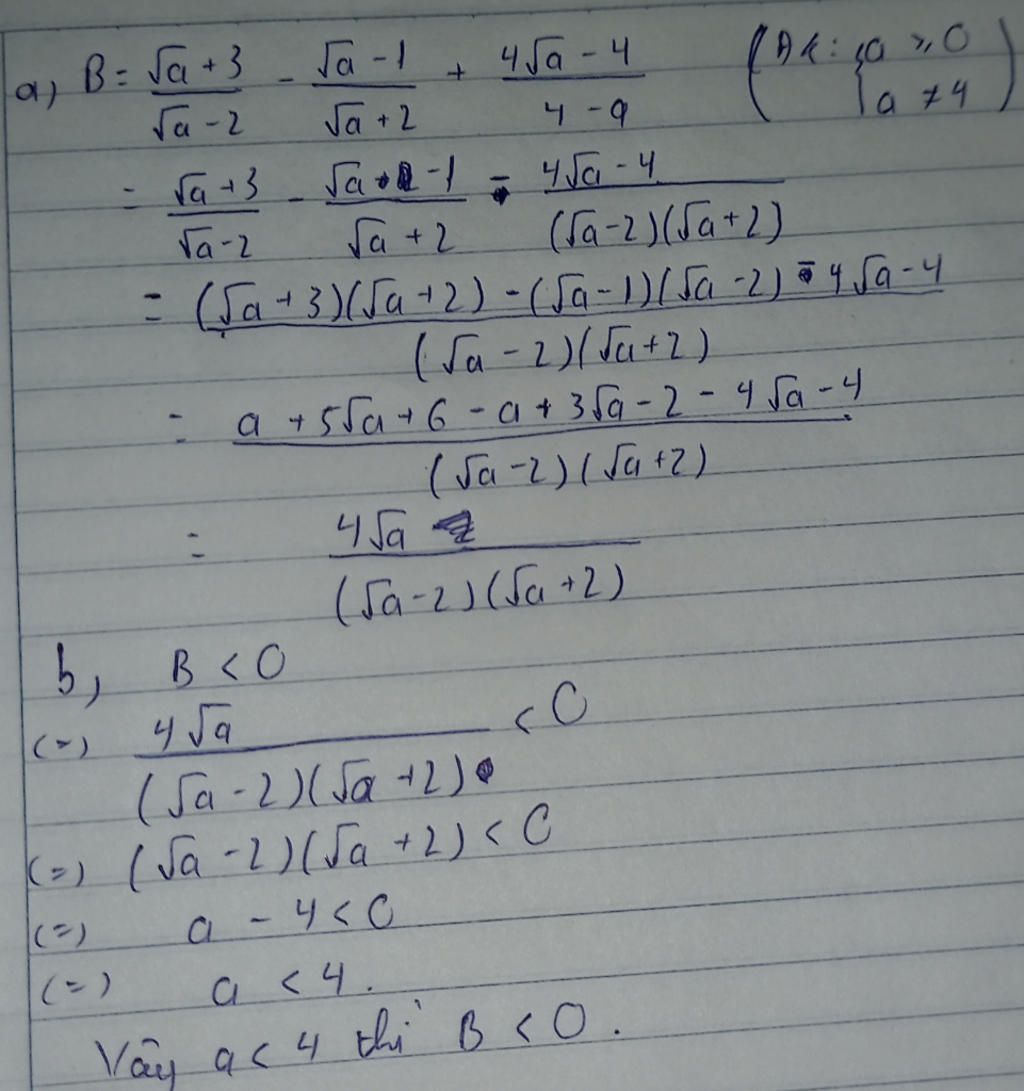 a, B = (√a + 3)/(√a - 2) - (√a - 1)/(√a + 2) + (4√a - 4)/(4 - a) (ĐK: {a ≥ 0 {a ≠ 4)
= (√a + 3)/(√a - 2) - (√a - 1)/(√a + 2) - (4√a - 4)/((√a - 2)(√a + 2))
= ((√a + 3)(√a + 2) - (√a - 1)(√a - 2) - 4√a - 4)/((√a - 2)(√a + 2))
= (a + 5√a + 6 - a + 3√a - 2 - 4√a - 4)/((√a - 2)(√a + 2))
= 4√a/((√a - 2)(√a + 2))
b, B < 0
(=) 4√a/((√a - 2)(√a + 2)) < 0
(=) (√a - 2)(√a + 2) < 0
(=) a - 4 < 0
(=) a < 4.
Vậy a < 4 thì B < 0.